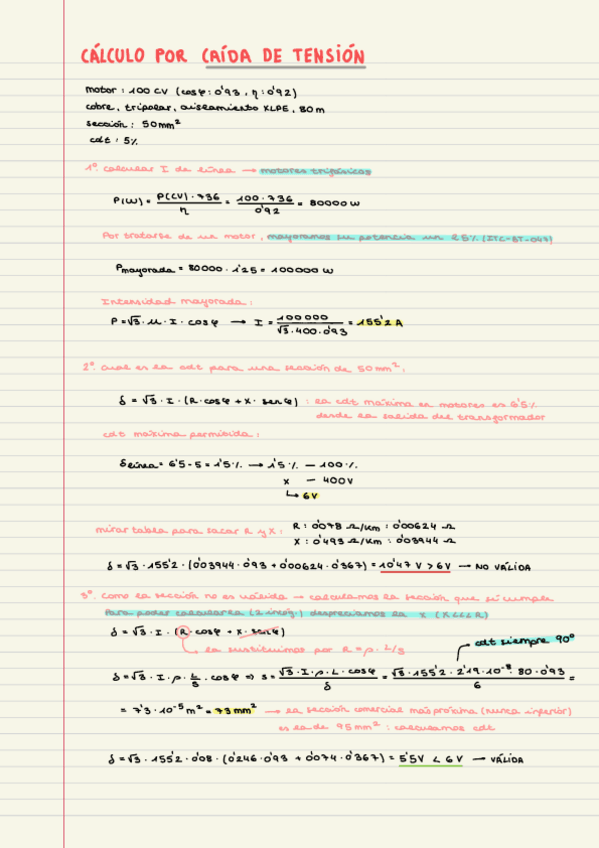 CÁLCULO POR CAÍDA DE TENSIÓN
motor: 100 CV (cosφ: 0'93, η: 0'92)
cobre, tripolar, aislamiento XLPE, 80 m
sección: 50 mm²
cdt: 5%
1º. Calcular I de línea → motores trifásicos
P(W) = P(CV)·736 / η = 100·736 / 0'92 = 80000 W
Por tratarse de un motor, mayoramos su potencia un 25% (ITC-BT-047)
Pmayorada = 80000 · 1'25 = 100000 W
Intensidad mayorada:
P = √3 · U · I · cosφ → I = 100000 / √3·400·0'93 = 155'2 A
2º. Cual es la cdt para una sección de 50 mm²:
δ = √3 · I · (R·cosφ + X·senφ) : la cdt máxima en motores es 6'5%
desde la salida del transformador
cdt máxima permitida:
δlínea = 6'5 - 5 = 1'5% → 1'5% — 100%
x — 400V
↳ 6V
mirar tabla para sacar R y X: R: 0'078 Ω/Km : 0'00624 Ω
X: 0'493 Ω/Km : 0'03944 Ω
δ = √3 · 155'2 · (0'03944·0'93 + 0'00624·0'367) = 10'47 V > 6V → NO VÁLIDA
3º. Como la sección no es válida → calculamos la sección que sí cumple
Para poder calcularla (2 incóg.) despreciamos la x (X<<<R)
δ = √3 · I · (R·cosφ + X·senφ)
↳ la sustituimos por R = ρ·L/S
cdt siempre 90º
δ = √3 · I · ρ · L/S · cosφ ⇒ S = √3·I·ρ·L·cosφ / δ = √3·155'2·2'19·10⁻⁸·80·0'93 / 6 =
= 7'3·10⁻⁵ m² = 73 mm² → la sección comercial más próxima (nunca inferior)
es la de 95 mm² : calculamos cdt
δ = √3 · 155'2 · 0'08 · (0'246·0'93 + 0'074·0'367) = 5'5V < 6V → VÁLIDA